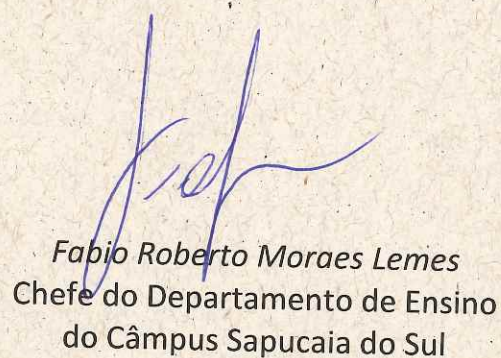 Fabio Roberto Moraes Lemes
Chefe do Departamento de Ensino
do Câmpus Sapucaia do Sul